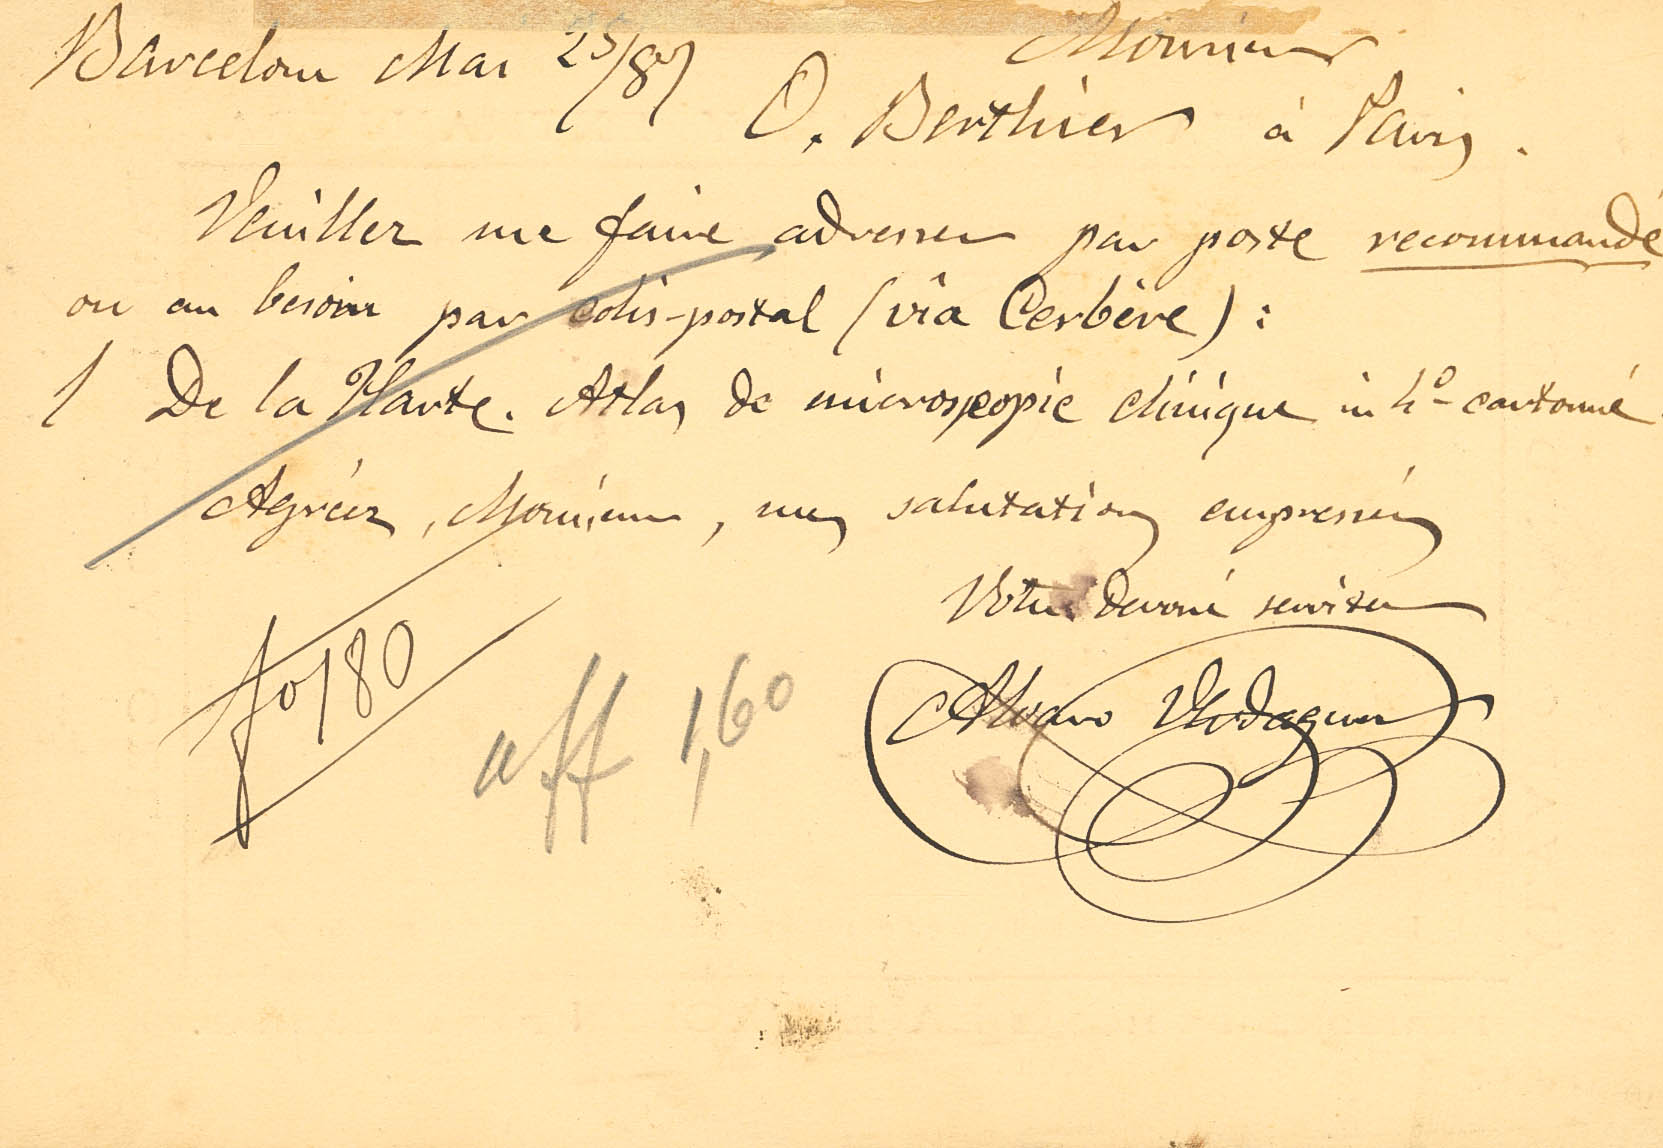 Barcelone Mai 25/87
Monsieur
O. Berthier à Paris.
Veuillez me faire adresser par poste recommandé
ou au besoin par colis-postal (vîa Cerbère) :
1 De la Harte. Atlas de microscopie clinique in 4º cartonné.
Agréez, Monsieur, mes salutations empressées
Votre dévoué serviteur
Alvaro Verdaguer
fo 180
aff 1,60